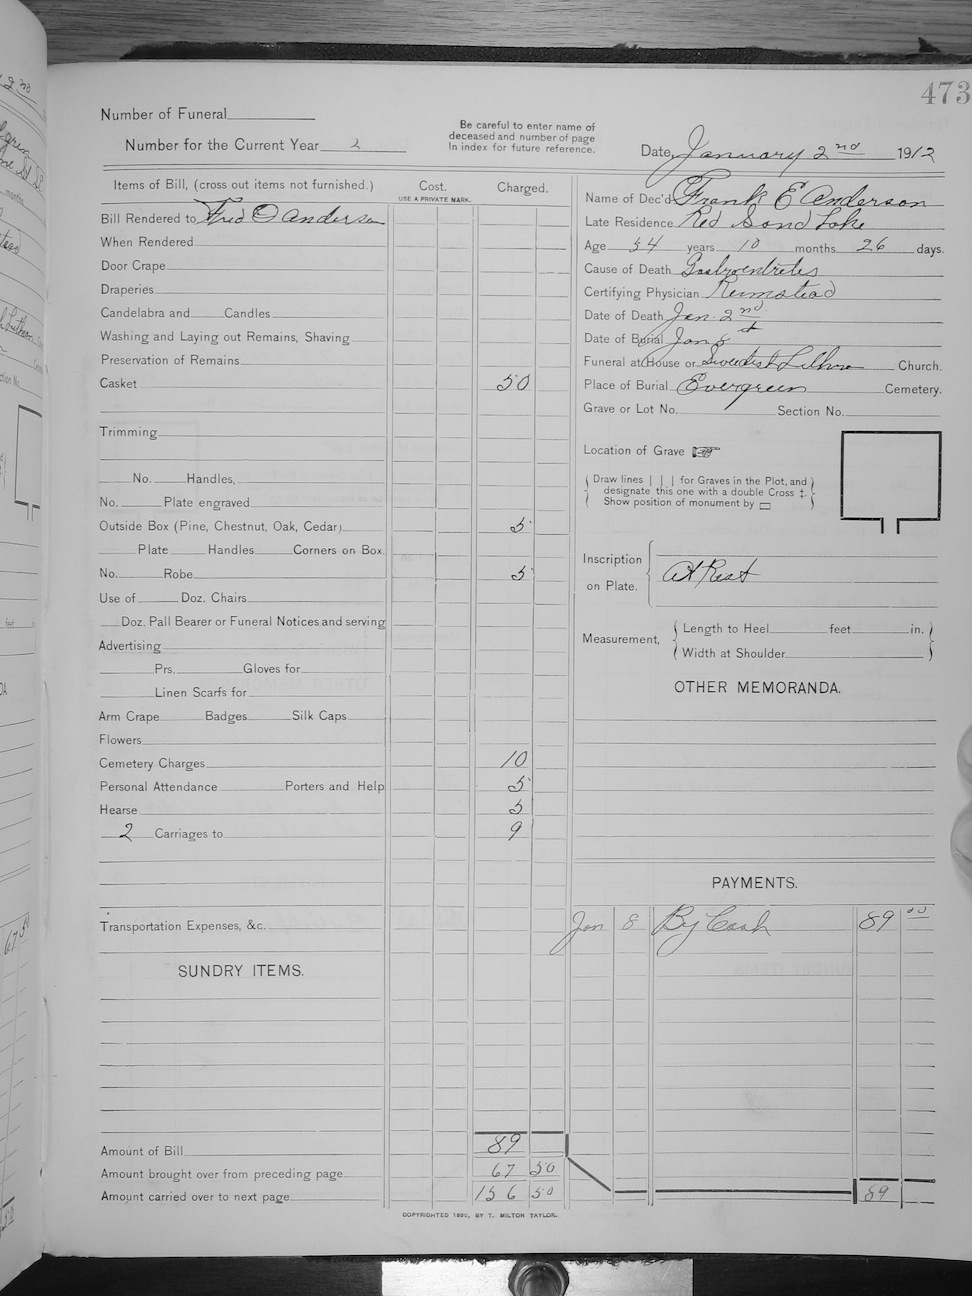 473
Number of Funeral
Number for the Current Year 2
Be careful to enter name of
deceased and number of page
In index for future reference.
Date, January 2nd 1912
Items of Bill, (cross out items not furnished.)
Cost.
USE A PRIVATE MARK.
Charged.
Bill Rendered to Fred O Anderson
When Rendered
Door Crape
Draperies
Candelabra and Candles
Washing and Laying out Remains, Shaving
Preservation of Remains
Casket 50
Trimming
No. Handles,
No. Plate engraved
Outside Box (Pine, Chestnut, Oak, Cedar) 5
Plate Handles Corners on Box.
No. Robe 5
Use of Doz. Chairs
Doz. Pall Bearer or Funeral Notices and serving
Advertising
Prs. Gloves for
Linen Scarfs for
Arm Crape Badges Silk Caps
Flowers
Cemetery Charges 10
Personal Attendance Porters and Help 5
Hearse 5
2 Carriages to 9
Transportation Expenses, &c.
SUNDRY ITEMS.
Amount of Bill 89
Amount brought over from preceding page 67 50
Amount carried over to next page 156 50
Name of Dec'd Frank E Anderson
Late Residence Red Sand Lake
Age 54 years 10 months 26 days.
Cause of Death Gastroenteritis
Certifying Physician
Date of Death Jan. 2nd
Date of Burial Jan 5
Funeral at House or Swedish Luthrn Church.
Place of Burial Evergreen Cemetery.
Grave or Lot No. Section No.
Location of Grave
Draw lines | | | for Graves in the Plot, and
designate this one with a double Cross ‡.
Show position of monument by
Inscription
on Plate.
At Rest
Measurement,
Length to Heel feet in.
Width at Shoulder
OTHER MEMORANDA.
PAYMENTS.
Jan 8 By Cash 89 00
89
COPYRIGHTED 1890, BY T. MILTON TAYLOR.